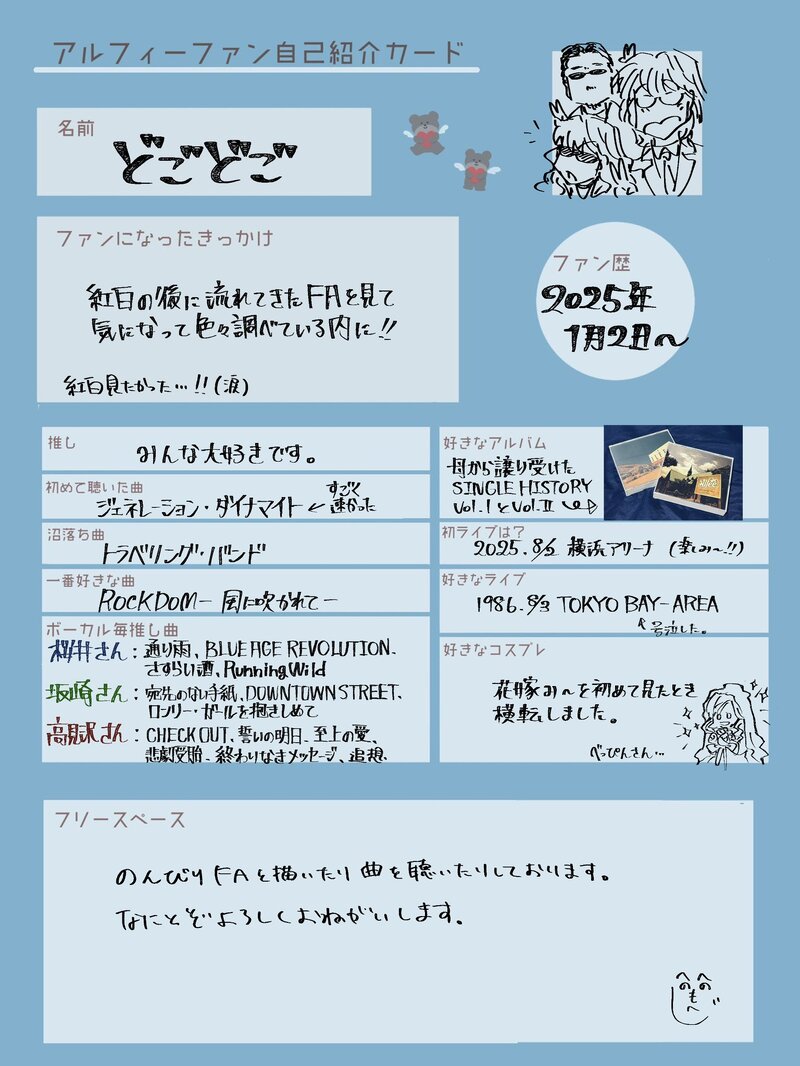 アルフィーファン自己紹介カード
名前
どごどご
ファンになったきっかけ
紅白の後に流れてきたFAを見て
気になって色々調べている内に!!
紅白見たかった…!!(涙)
ファン歴
2025年
1月2日〜
推し
みんな大好きです。
初めて聴いた曲
ジェネレーション・ダイナマイト ← すごく
速かった
沼落ち曲
トラベリング・バンド
一番好きな曲
ROCKDOM－風に吹かれて－
ボーカル毎推し曲
桜井さん:通り雨、BLUE AGE REVOLUTION、
さすらい酒、Running Wild
坂崎さん:宛先のない手紙、DOWNTOWN STREET、
ロンリー・ガールを抱きしめて
高見沢さん:CHECK OUT、誓いの明日、至上の愛、
悲劇受胎、終わりなきメッセージ、追想、
好きなアルバム
母から譲り受けた
SINGLE HISTORY
Vol.ⅠとVol.Ⅱ
初ライブは?
2025.8/2 横浜アリーナ (楽しみ〜!!)
好きなライブ
1986.8/3 TOKYO BAY-AREA
号泣した。
好きなコスプレ
花嫁み〜を初めて見たとき
横転しました。
べっぴんさん…
フリースペース
のんびりFAを描いたり曲を聴いたりしております。
なにとぞよろしくおねがいします。